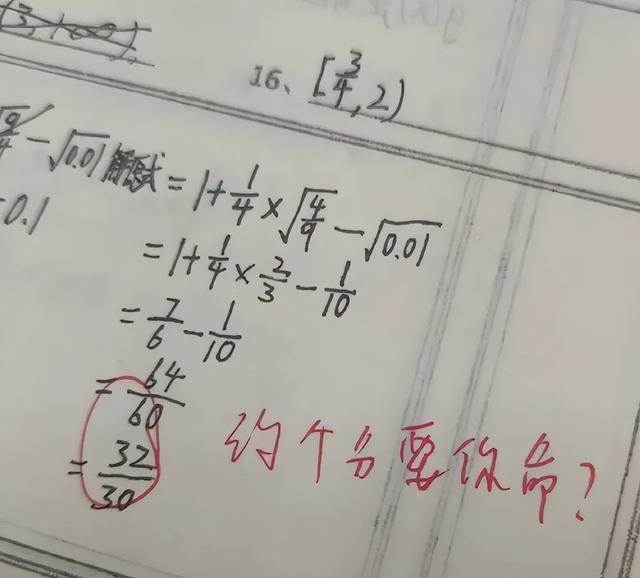 16、[3/4, 2)
-√0.01 解：原式 = 1 + 1/4 × √(4/9) - √0.01
0.1
= 1 + 1/4 × 2/3 - 1/10
= 7/6 - 1/10
= 64/60
= 32/30
约个分要你命？